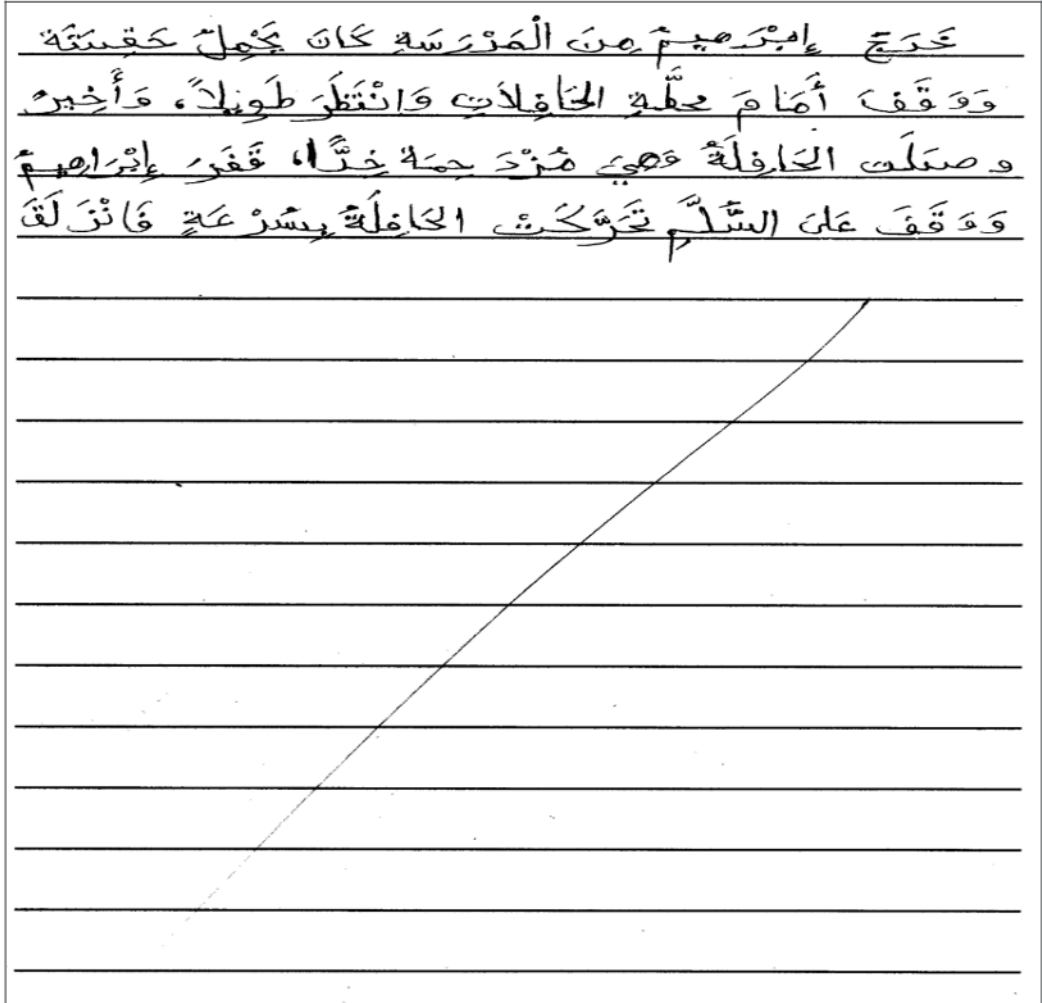 خَرَجَ إِبْرَهِيمُ مِنَ الْمَدْرَسَةِ كَانَ يَحْمِلُ حَقِيبَتَهُ
وَوَقَفَ أَمَامَ مَحطَّةِ الحَافِلَاتِ وَانْتَظَرَ طَوِيلاً، وَأَخِيرُ
وصلَت الحَافِلَةُ وَهِيَ مُزْدَحِمَة جِدًّا، قَفَرَ إِبْرَاهِيمُ
وَوَقَفَ عَلَى السُّلَّمِ تَحَرَّكَتْ الحَافِلَةُ بِسُرْعَةٍ فَانْزَلَقَ